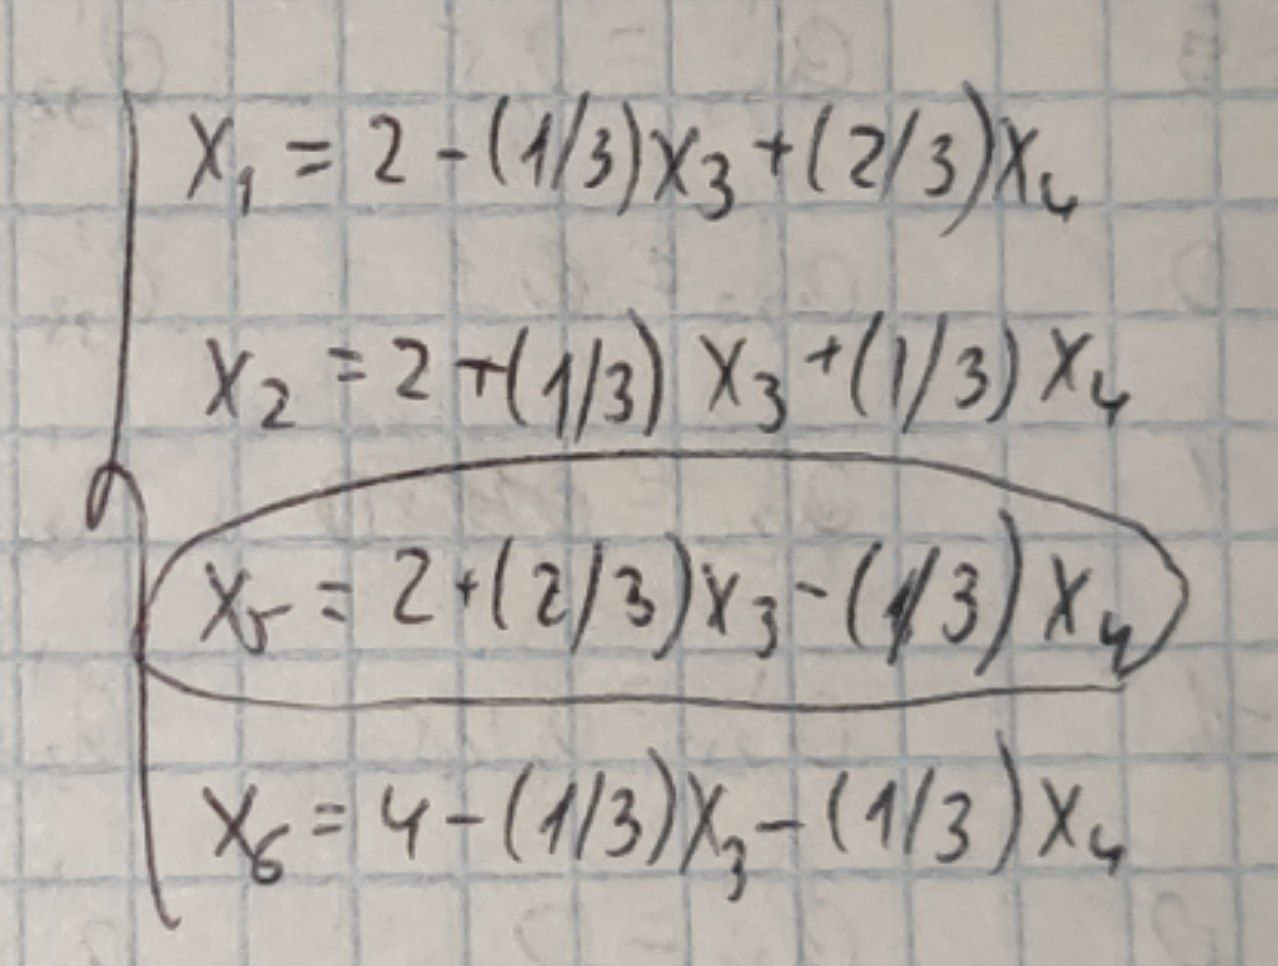 X₁ = 2 - (1/3)X₃ + (2/3)X₄
X₂ = 2 + (1/3) X₃ + (1/3) X₄
X₅ = 2 + (2/3)X₃ - (1/3) X₄
X₆ = 4 - (1/3)X₃ - (1/3) X₄